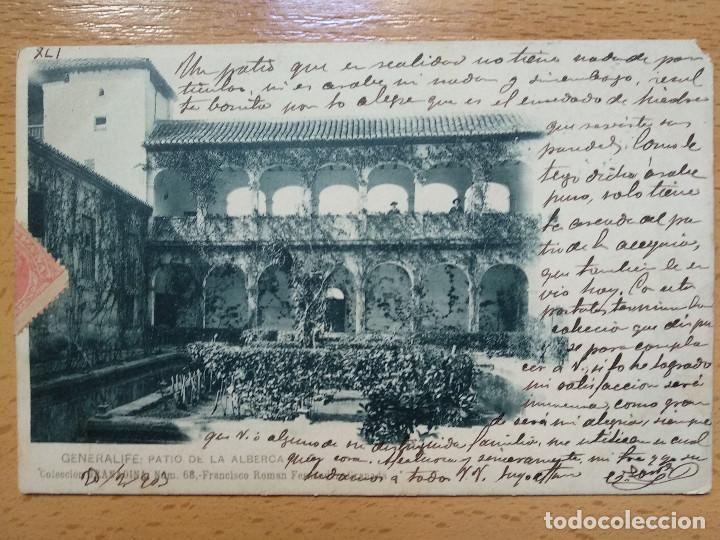 XLI
Un patio que en realidad no tiene nada de par
ticular, ni es arabe ni nada y sin embargo, resul
ta bonito por lo alegre que es el enredado de hiedras
que reviste sus
paredes. Como le
tengo dicho á
puro, solo tiene
la cascada del pa
tio de la acequia,
que tambien le en
vio hoy. Con esta
postal, termina la
coleccion que dispu
se para compla
cer á V., si lo he logrado
mi satisfaccion será
inmensa como gran
de será mi alegria, siempre
que V. ó alguno de su distinguida familia, me utilicen en cual
quier cosa. Afectuosa y sinceramente, mi
ludamos á todos VV.
GENERALIFE: PATIO DE LA ALBERCA
Colección GRANADINA Núm. 68,-Francisco Roman
todocoleccion
todocoleccion.net